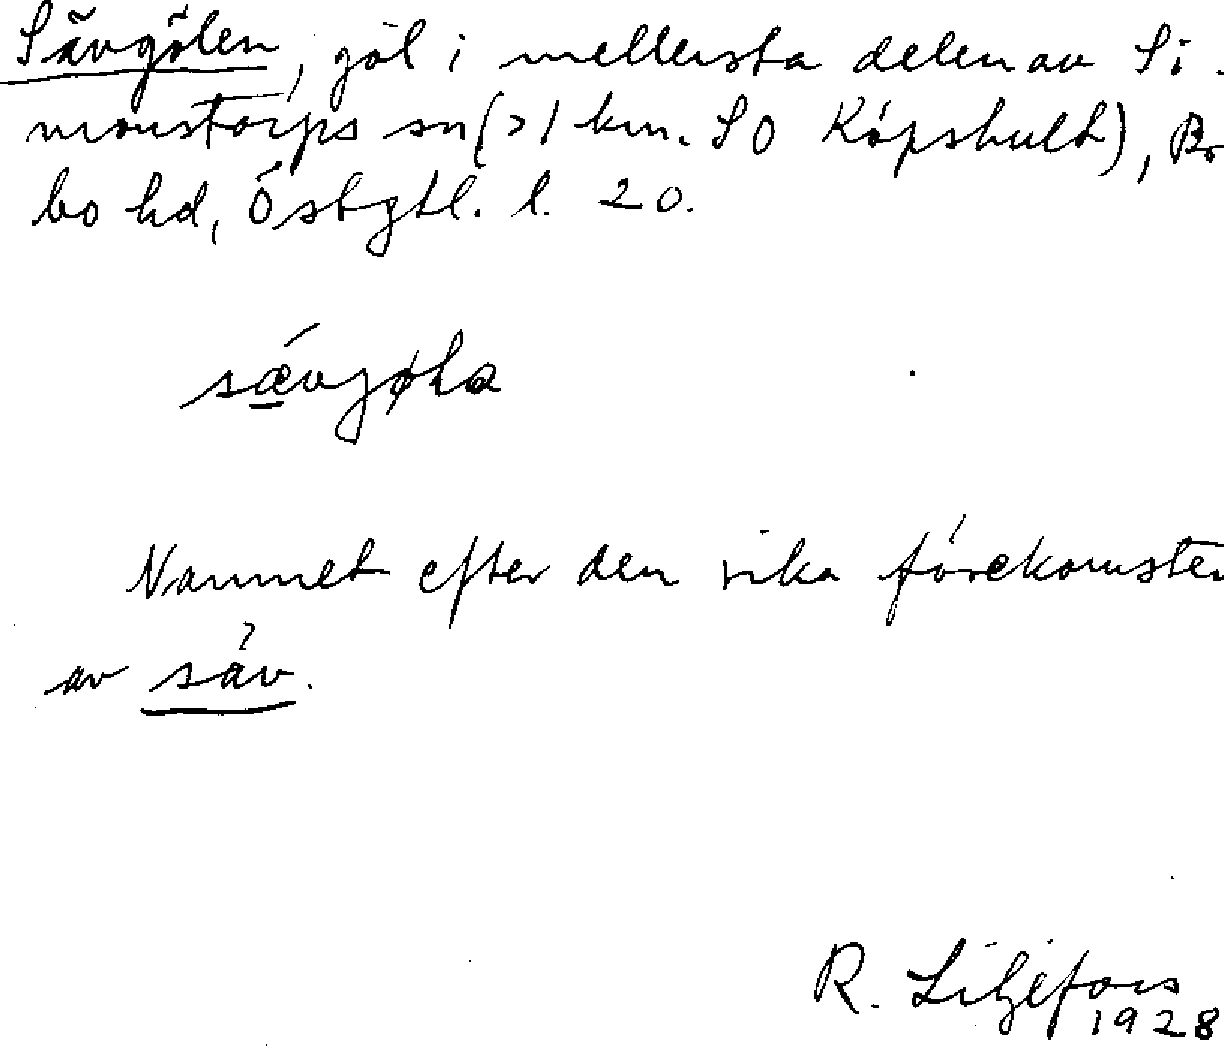 Sävgölen, göl i mellersta delen av Si-
monstorps sn (>1 km. SO Köpshult), Bro
bo hd, Östgtl. l. 20.
sǽvjøla
Namnet efter den rika förekomsten
av säv.
R. Liljefors
1928